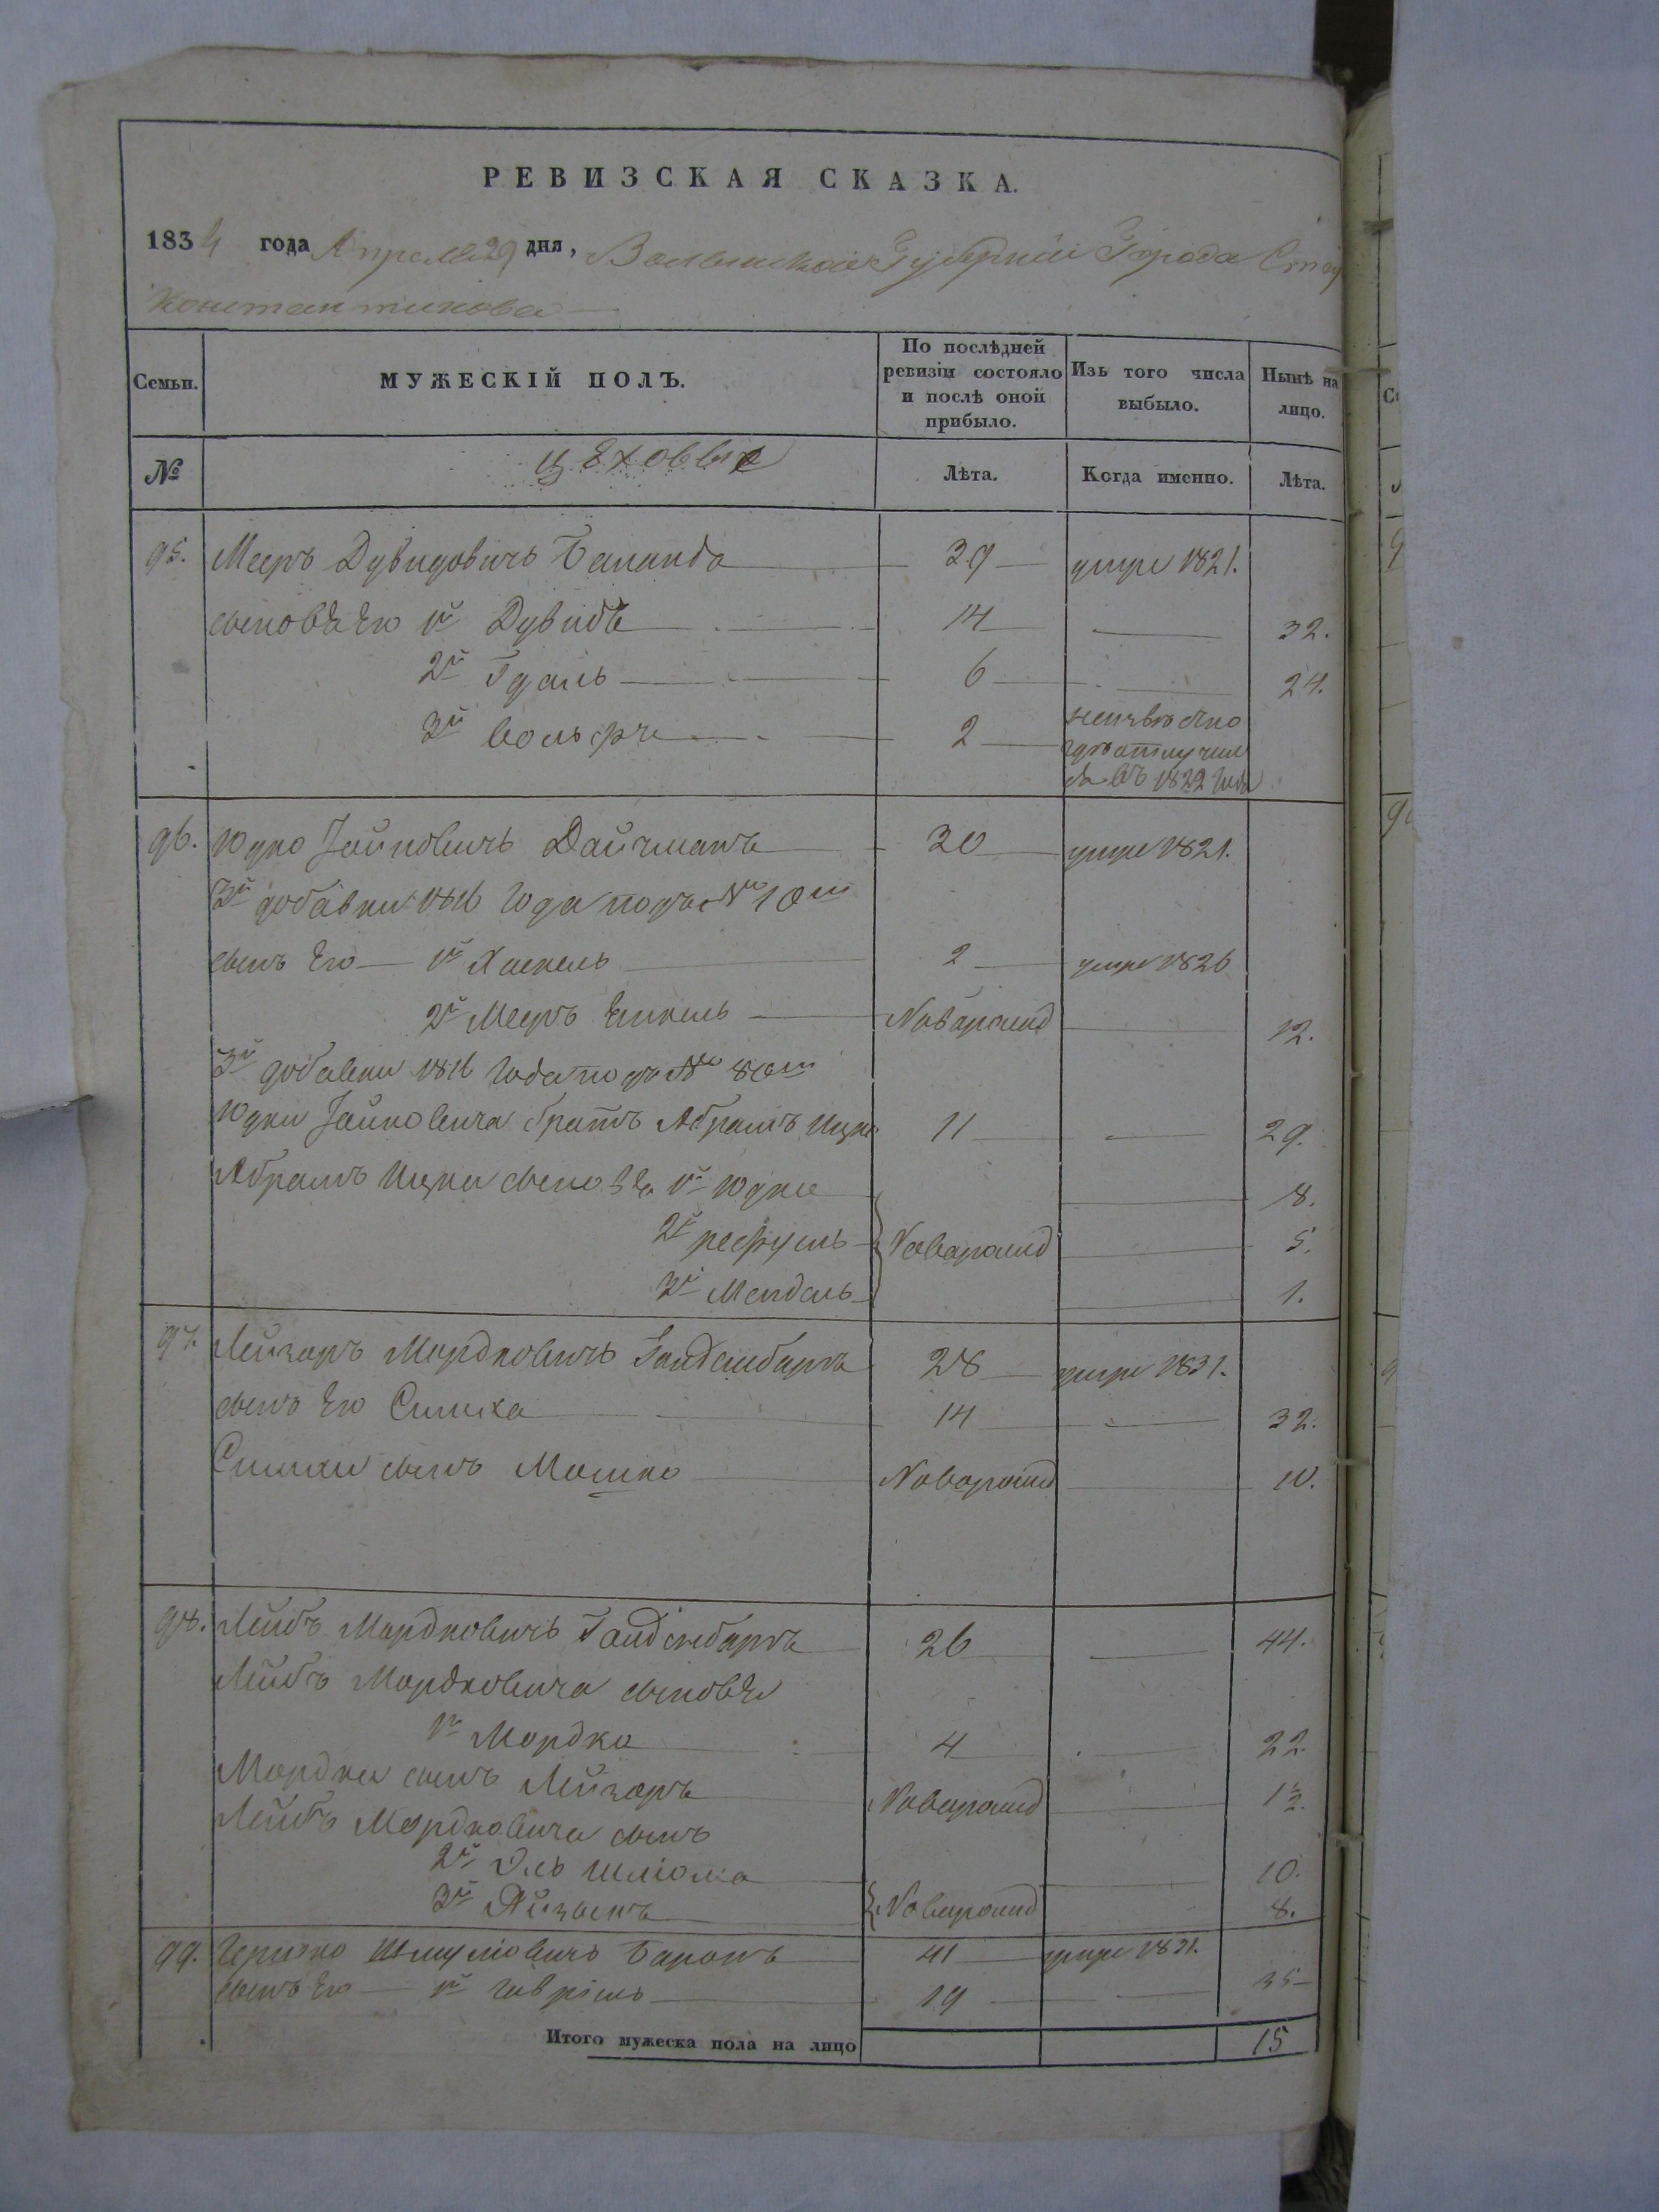 РЕВИЗСКАЯ СКАЗКА.
1834 года Апреля 29 дня, Волынской Губернии Города Старо
Константинова
Семьи. МУЖЕСКІЙ ПОЛЪ. По послѣдней ревизіи состояло и послѣ оной прибыло. Изъ того числа выбыло. Нынѣ на лицо.
№ цѣховые Лѣта. Когда именно. Лѣта.
95. Мееръ Дувидовичъ 39 умре 1821.
сыновья Его 1й Дувидъ 14 32.
2й Гдаль 6 24.
3й Вольфъ 2 неизвестно
где отлучил
ся въ 1829 года
96. Юдко Дайчманъ 30 умре 1821.
3й добавки 1816 года подъ № 10m
сынъ Его 1й Хаскель 2 умре 1826
2й Мееръ Новорожд 12.
3й добавки 1816 года подъ № 80m
Юдки братъ Абрамъ Ицко 11 29.
Абрамъ Ицки сыновья 1й Юдко 8.
2й рефуль Новорожд 5.
3й Мендель 1.
97. Лейзоръ Мордковичъ 28 умре 1831.
сынъ Его Симха 14 32.
Симхи сынъ Мошко Новорожд 10.
98. Лейбъ Мордковичъ 26 44.
Лейбъ Мордковича сыновья
1й Мордко 4 22.
Мордки сынъ Лейзоръ Новорожд 1½.
Лейбъ Мордковича сынъ
2й Эль Шліома 10.
3й Айзыкъ Новорожд 8.
99. Гершко Шмуліовичъ Баронъ 41 умре 1831.
сынъ Его 1й Гавріель 19 35
Итого мужеска пола на лицо 15